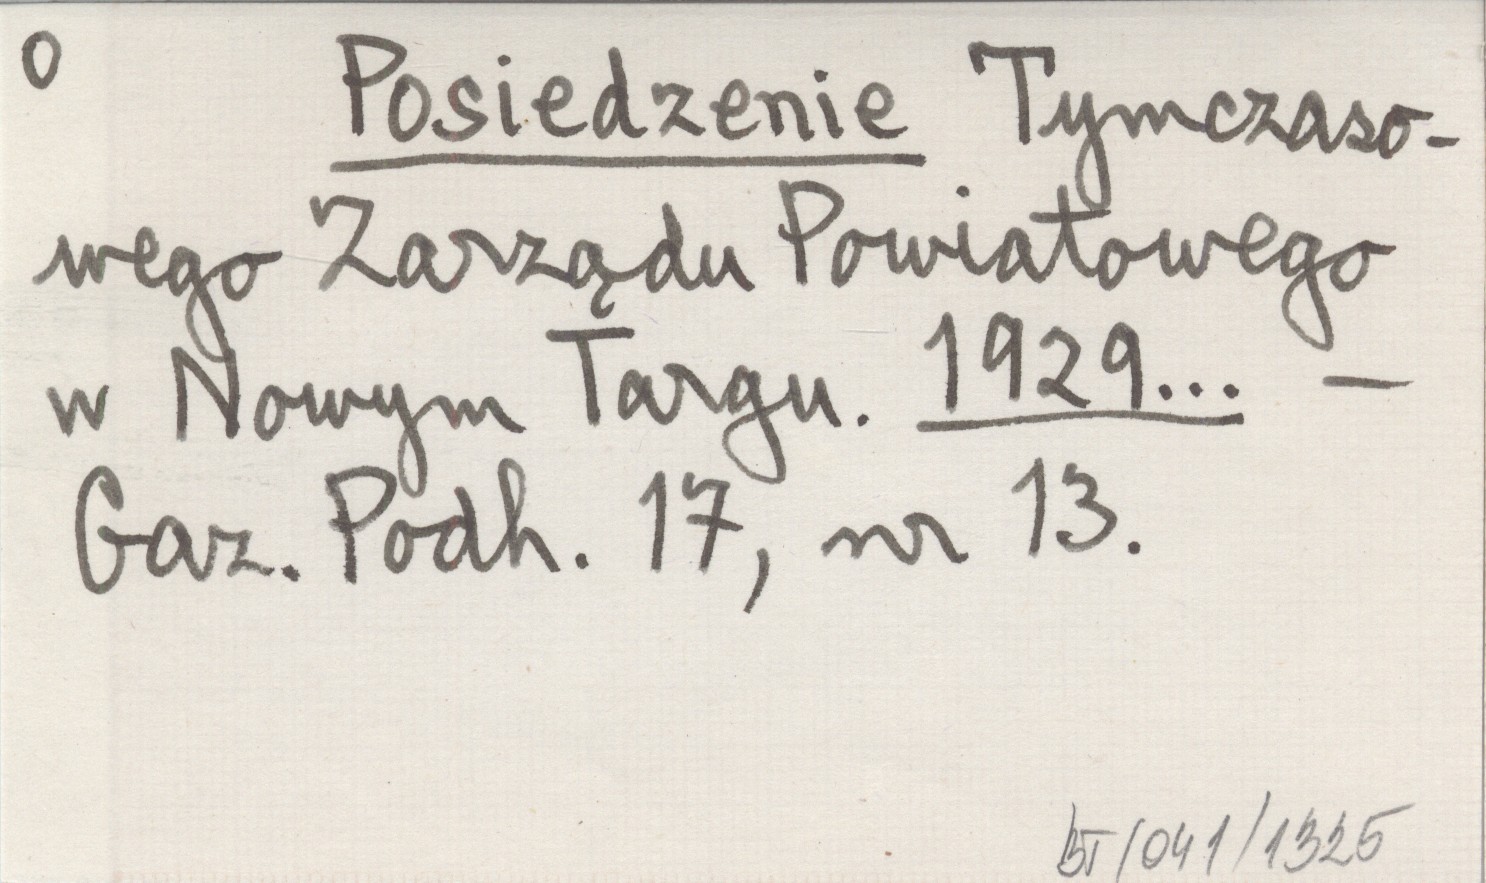 O Posiedzenie Tymczaso-
wego Zarządu Powiatowego
w Nowym Targu. 1929... —
Gaz. Podh. 17, nr 13.
BT/041/1325